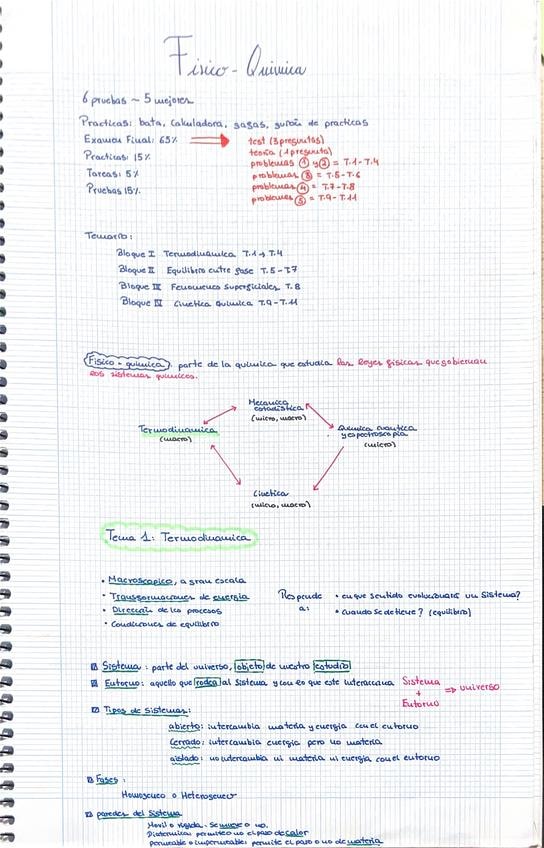 Fisico - Quimica
6 pruebas ~ 5 mejores
Practicas: bata, calculadora, gafas, guión de practicas
Examen Final: 65%
test (3 preguntas)
teoria (1 pregunta)
Practicas 15%
problemas ① y ② = T.1 - T.4
Tareas: 5%
problemas ③ = T.5 - T.6
Pruebas 15%
problemas ④ = T.7 - T.8
problemas ⑤ = T.9 - T.11
Temario:
Bloque I Termodinámica T.1 → T.4
Bloque II Equilibrio entre fase T.5 - T.7
Bloque III Fenomenos Superficiales T.8
Bloque IV Cinetica Quimica T.9 - T.11
Fisico - quimica: parte de la quimica que estudia las leyes físicas que gobiernan
los sistemas quimicos.
Mecanica
estadística
(micro, macro)
Termodinamica
(macro)
Química cuantica
y espectroscopia
(micro)
Cinetica
(micro, macro)
Tema 1: Termodinamica
• Macroscopico, a gran escala
• Transformaciones de energía
• Dirección de los procesos
• Condiciones de equilibrio
Responde
a:
• en que sentido evolucionará un sistema?
• cuando se detiene? (equilibrio)
Sistema: parte del universo, objeto de nuestro estudio
Entorno: aquello que rodea al sistema y con lo que este interacciona
Sistema
+
Entorno
=> universo
Tipos de Sistemas:
abierto: intercambia materia y energia con el entorno
Cerrado: intercambia energia pero no materia
aislado: no intercambia ni materia ni energia con el entorno
Fases:
Homogeneo o Heterogeneo
paredes del sistema
Movil o rigida - se mueve o no.
Diatermica: permite o no el paso de calor
permeable o impermeable: permite el paso o no de materia